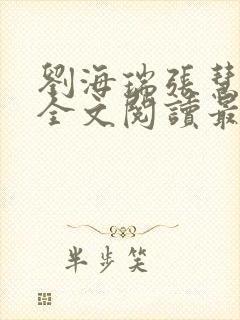 劉海瑞張慧
全文閱讀最
半步笑